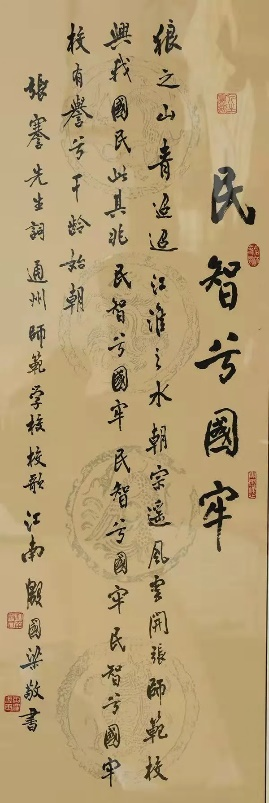 民智兮國牢
狼之山青迢迢江淮之水朝宗遥風雲開張師範校
興我國民此其兆民智兮國牢民智兮國牢民智兮國牢
校有譽兮千齡始朝
張謇先生詞通州師範学校校歌江南國梁敬書